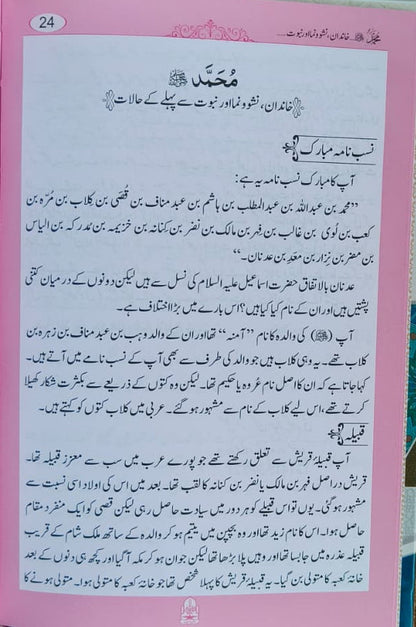 24
محمد ﷺ ... خاندان، نشوونما اور نبوت .....
مُحَمَّد ﷺ
خاندان، نشوونما اور نبوت سے پہلے کے حالات
نسب نامہ مبارک
آپ کا مبارک نسب نامہ یہ ہے:
”محمد بن عبداللہ بن عبدالمطلب بن ہاشم بن عبد مناف بن قُصَی بن کِلاب بن مُرّہ بن
کعب بن لُوی بن غالب بن فِہر بن مالک بن نضر بن کِنانہ بن خزیمہ بن مدرکہ بن الیاس
بن مضر بن نزار بن معد بن عدنان۔“
عدنان بالاتفاق حضرت اسماعیل علیہ السلام کی نسل سے ہیں لیکن دونوں کے درمیان کتنی
پشتیں ہیں اور ان کے نام کیا کیا ہیں؟ اس بارے میں بڑا اختلاف ہے۔
آپ (ﷺ) کی والدہ کا نام ”آمنہ“ تھا اور ان کے والد وہب بن عبد مناف بن زہرہ بن
کلاب تھے۔ یہ وہی کلاب ہیں جو والد کی طرف سے بھی آپ کے نسب نامے میں آتے ہیں۔
کہا جاتا ہے کہ ان کا اصل نام عروہ یا حکیم تھا۔ لیکن وہ کتوں کے ذریعے سے بکثرت شکار کھیلا
کرتے تھے، اس لیے کلاب کے نام سے مشہور ہو گئے۔ عربی میں کلاب کتوں کو کہتے ہیں۔
قبیلہ
آپ قبیلۂ قریش سے تعلق رکھتے تھے جو پورے عرب میں سب سے معزز قبیلہ تھا۔
قریش دراصل فہر بن مالک یا نضر بن کنانہ کا لقب تھا۔ بعد میں اس کی اولاد اسی نسبت سے
مشہور ہو گئی۔ یوں تو اس قبیلے کو ہر دور میں سیادت حاصل رہی لیکن قصی کو ایک منفرد مقام
حاصل ہوا۔ اس کا نام زید تھا اور وہ بچپن میں یتیم ہو کر والدہ کے ساتھ ملک شام کے قریب
قبیلہ عذرہ میں جا بسا تھا اور وہیں پلا بڑھا تھا لیکن جوان ہو کر مکہ آ گیا اور کچھ ہی دنوں کے بعد
خانہ کعبہ کا متولی بن گیا۔ یہ قبیلۂ قریش کا پہلا شخص تھا جو خانۂ کعبہ کا متولی ہوا۔ متولی ہونے کا